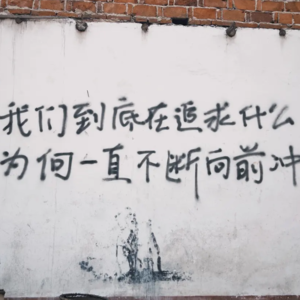 我们到底在追求什么
为何一直不断向前冲